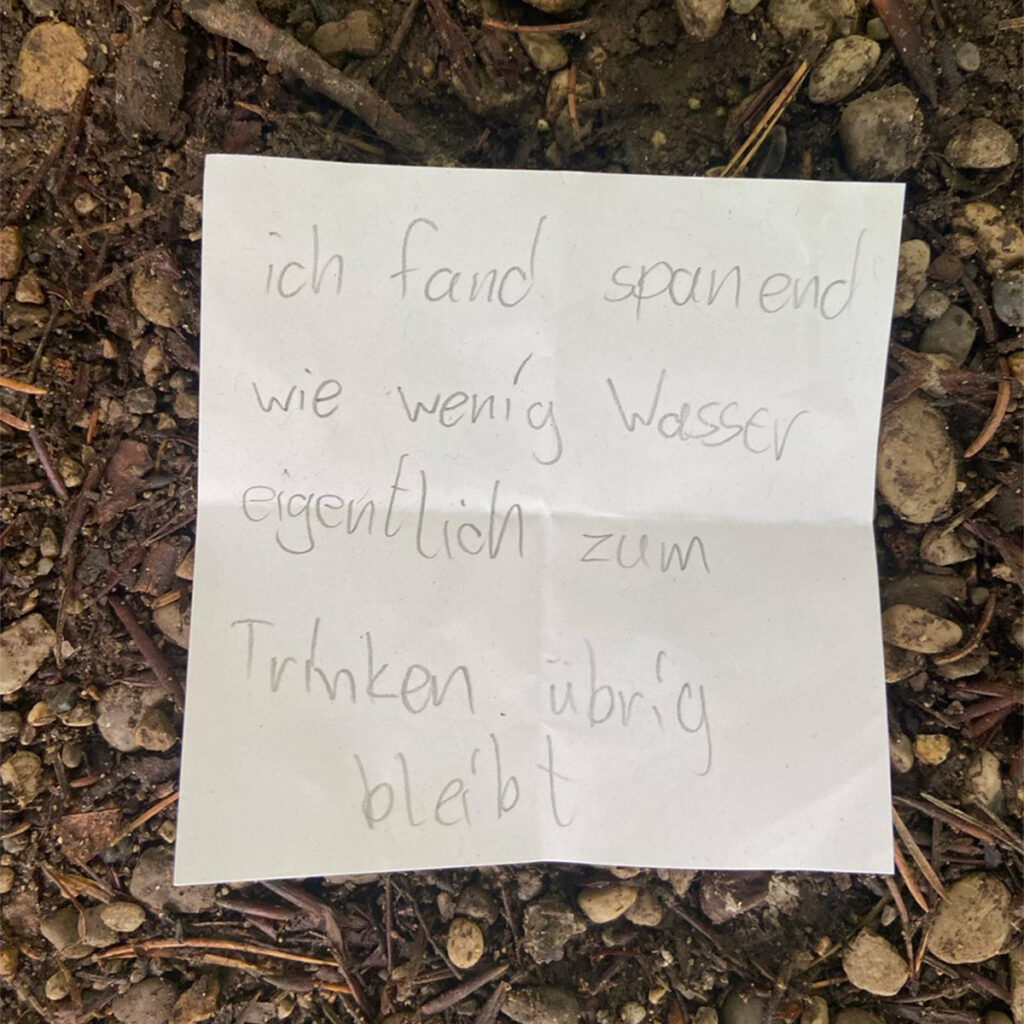 ich fand spanend
wie wenig Wasser
eigentlich zum
Trinken übrig
bleibt